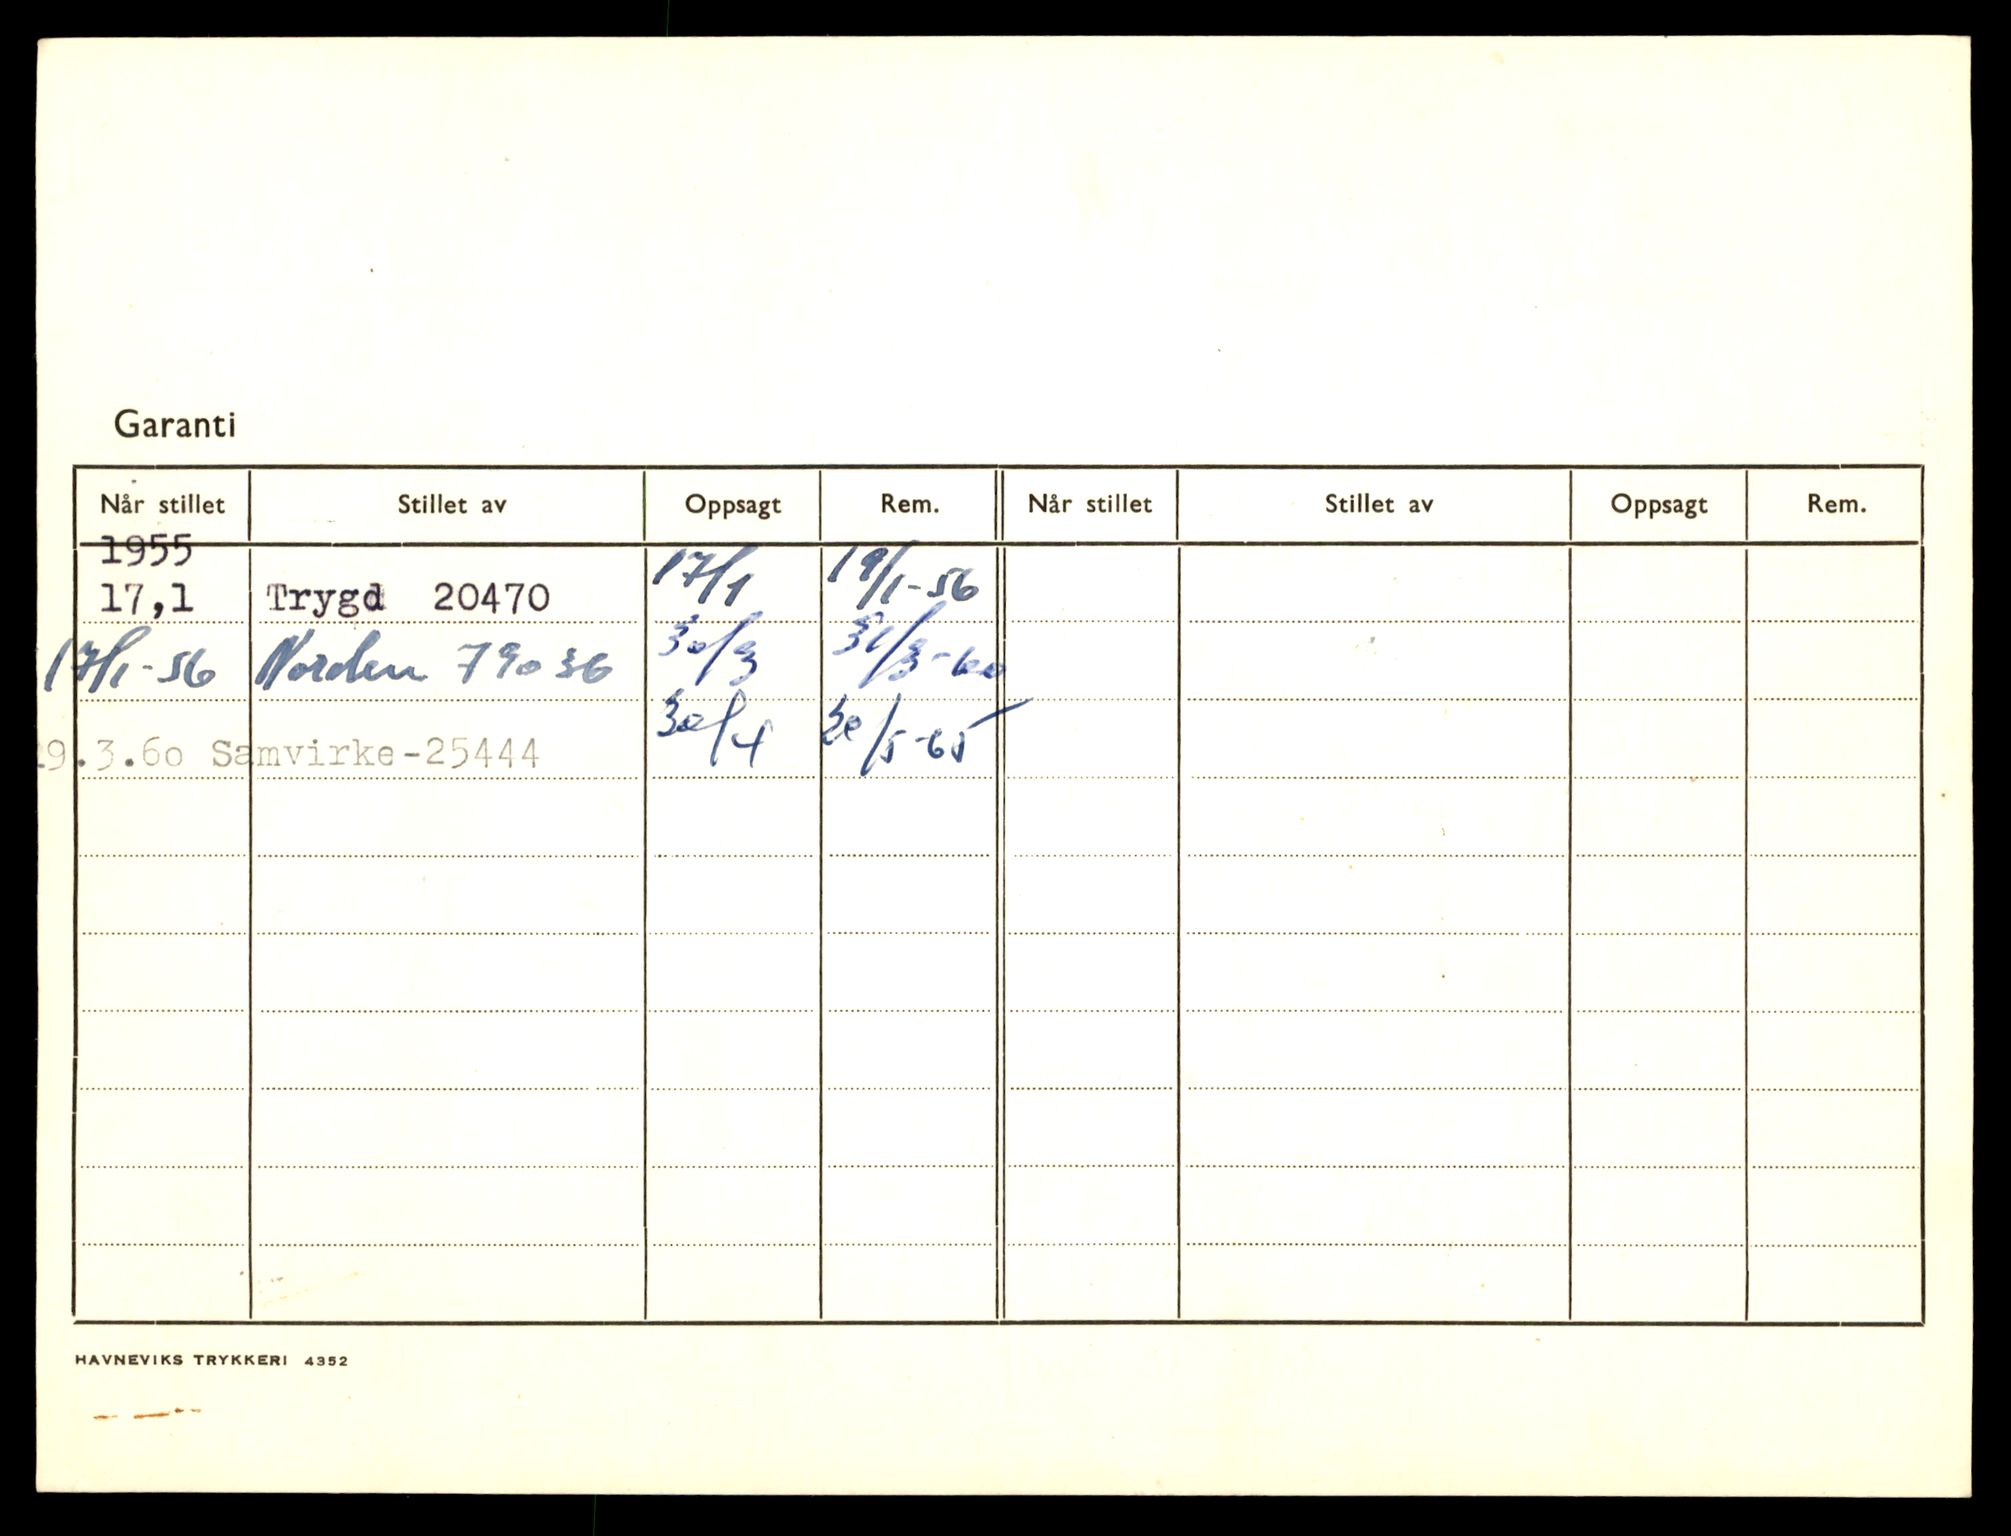 Garanti
Når stillet Stillet av Oppsagt Rem. Når stillet Stillet av Oppsagt Rem.
1955
17,1 Trygd 20470 17/1 19/1-56
17/1-56 Norden 79036 30/3 31/3-60
29.3.60 Samvirke-25444 30/4 /5-65
HAVNEVIKS TRYKKERI 4352